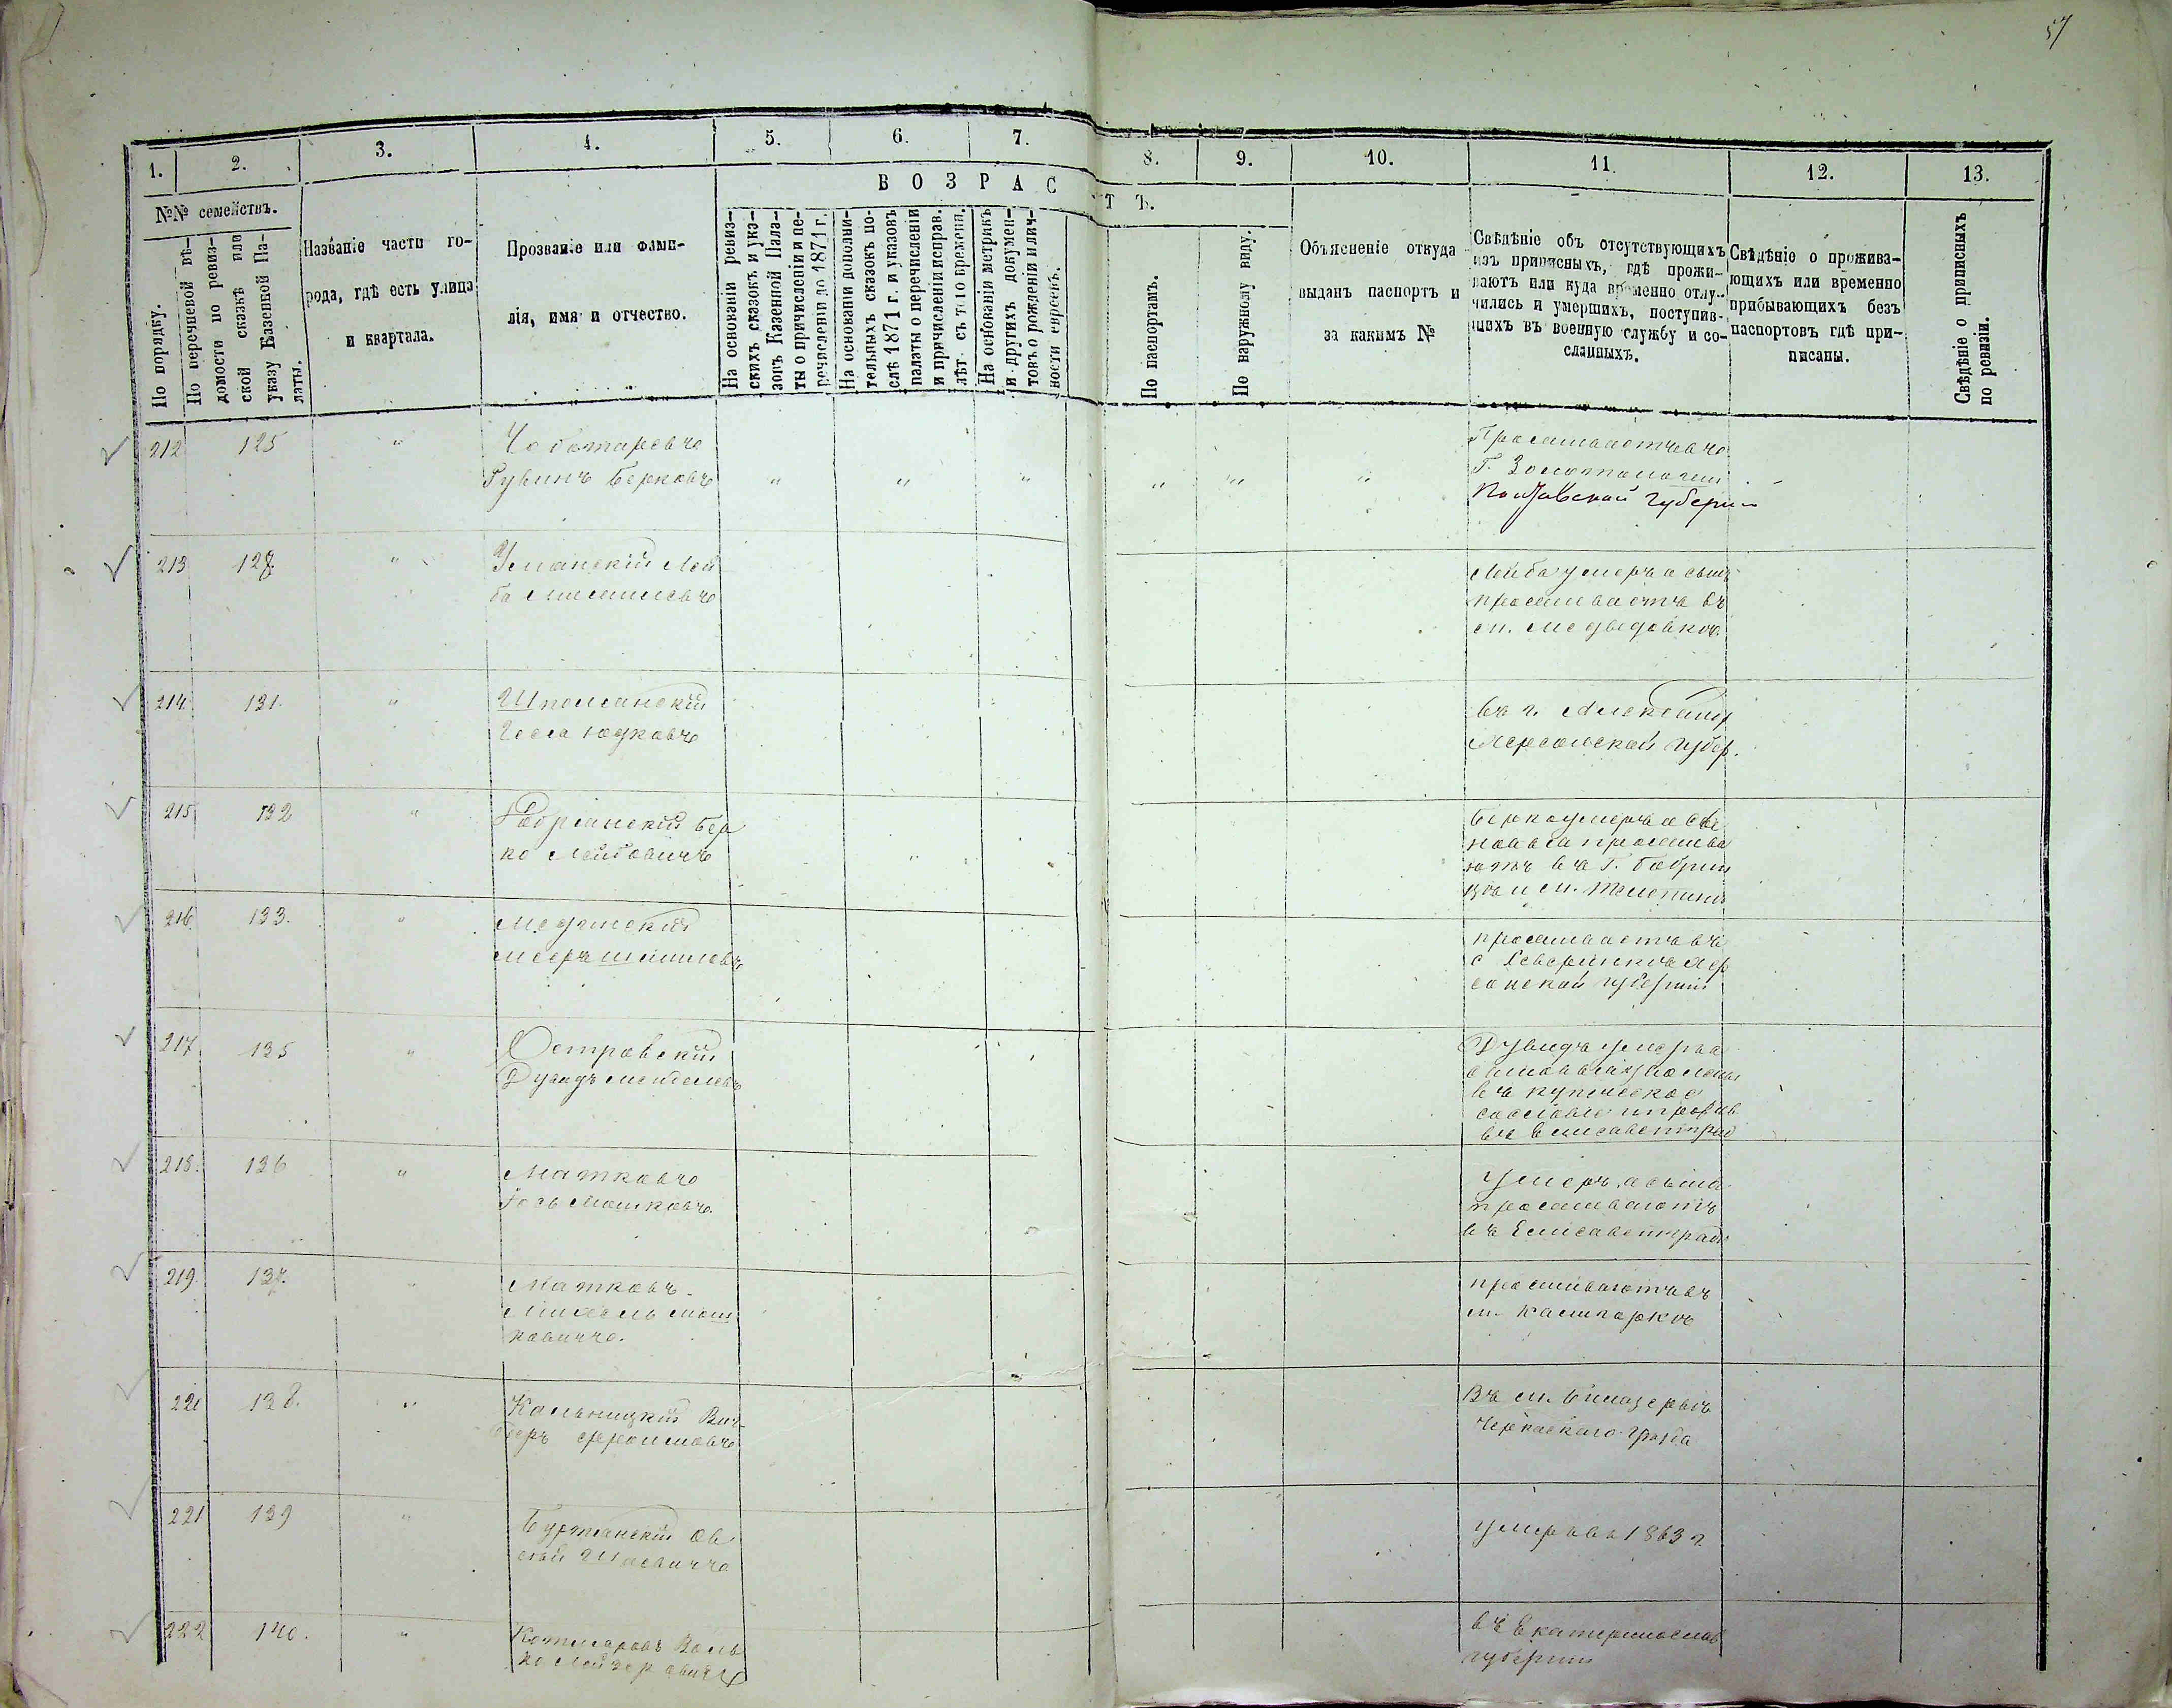 57
1. 2. 3. 4. 5. 6. 7. 8. 9. 10. 11. 12. 13.
№№ семействъ.
По порядку.
По перечневой вѣ-
домости по ревиз-
ской сказкѣ или
указу Казенной Па-
латы.
Названіе части го-
рода, гдѣ есть улица
и квартала.
Прозваніе или фами-
лія, имя и отчество.
ВОЗРАСТЪ.
На основаніи ревиз-
скихъ сказокъ и ука-
зовъ Казенной Пала-
ты о причисленіи и пе-
речисленіи до 1871 г.
На основаніи дополни-
тельныхъ сказокъ по-
слѣ 1871 г. и указовъ
палаты о перечисленіи
и причисленіи исправ.
лѣт. съ того времени.
На основаніи метрикъ
и другихъ докумен-
товъ о рожденіи и лич-
ности евреевъ.
По паспортамъ.
По наружному виду.
Объясненіе откуда
выданъ паспортъ и
за какимъ №
Свѣдѣніе объ отсутствующихъ
изъ приписныхъ, гдѣ прожи-
ваютъ или куда временно отлу-
чились и умершихъ, поступив-
шихъ въ военную службу и со-
сланныхъ.
Свѣдѣніе о прожива-
ющихъ или временно
прибывающихъ безъ
паспортовъ гдѣ при-
писаны.
Свѣдѣніе о приписныхъ
по ревизіи.
212 125 " Чоботаревъ
Рувинъ Берковъ " " " " " "
Проживаетъ въ
Г. Золотоноши
Полтавской губерніи
213 127. " Уманскій Лей
ба
Лейба умеръ а сынъ
проживаетъ въ
м. Медведовкѣ
214. 131. " Шполянскій
Іосъ Юдковъ
въ г. Александр
Херсонской губер.
215 132 " Бер
ко Лейбовичъ
Берко умеръ а сы
новья прожива
ютъ въ Г. Бобрин
цѣ и м. Телепино
216. 133. "
Мееръ
проживаетъ въ
с Северинкѣ Хер
сонской губерніи
217. 135 " Островскій
Дувидъ Менделевъ
Дувидъ умеръ а
сыновья
въ купеческое
сословіе и прожив
въ Елисаветград
218. 136 " Матковъ
Іось Мошковъ
Умеръ, а сыны
проживаютъ
въ Елисаветградѣ
219. 137. Матковъ
Михель Мош
ковичъ.
проживаютъ въ
м. Калигоркѣ
220 138. " Кальницкій
Фроимовъ
Въ м. Белозерьѣ
Черкаскаго уѣзда
221 139 " Буртянскій Ов
сѣй
умеръ въ 1863 г
222 140. " Котляровъ Воль
ко Лейзеровичъ
въ Екатеринослав
губерніи